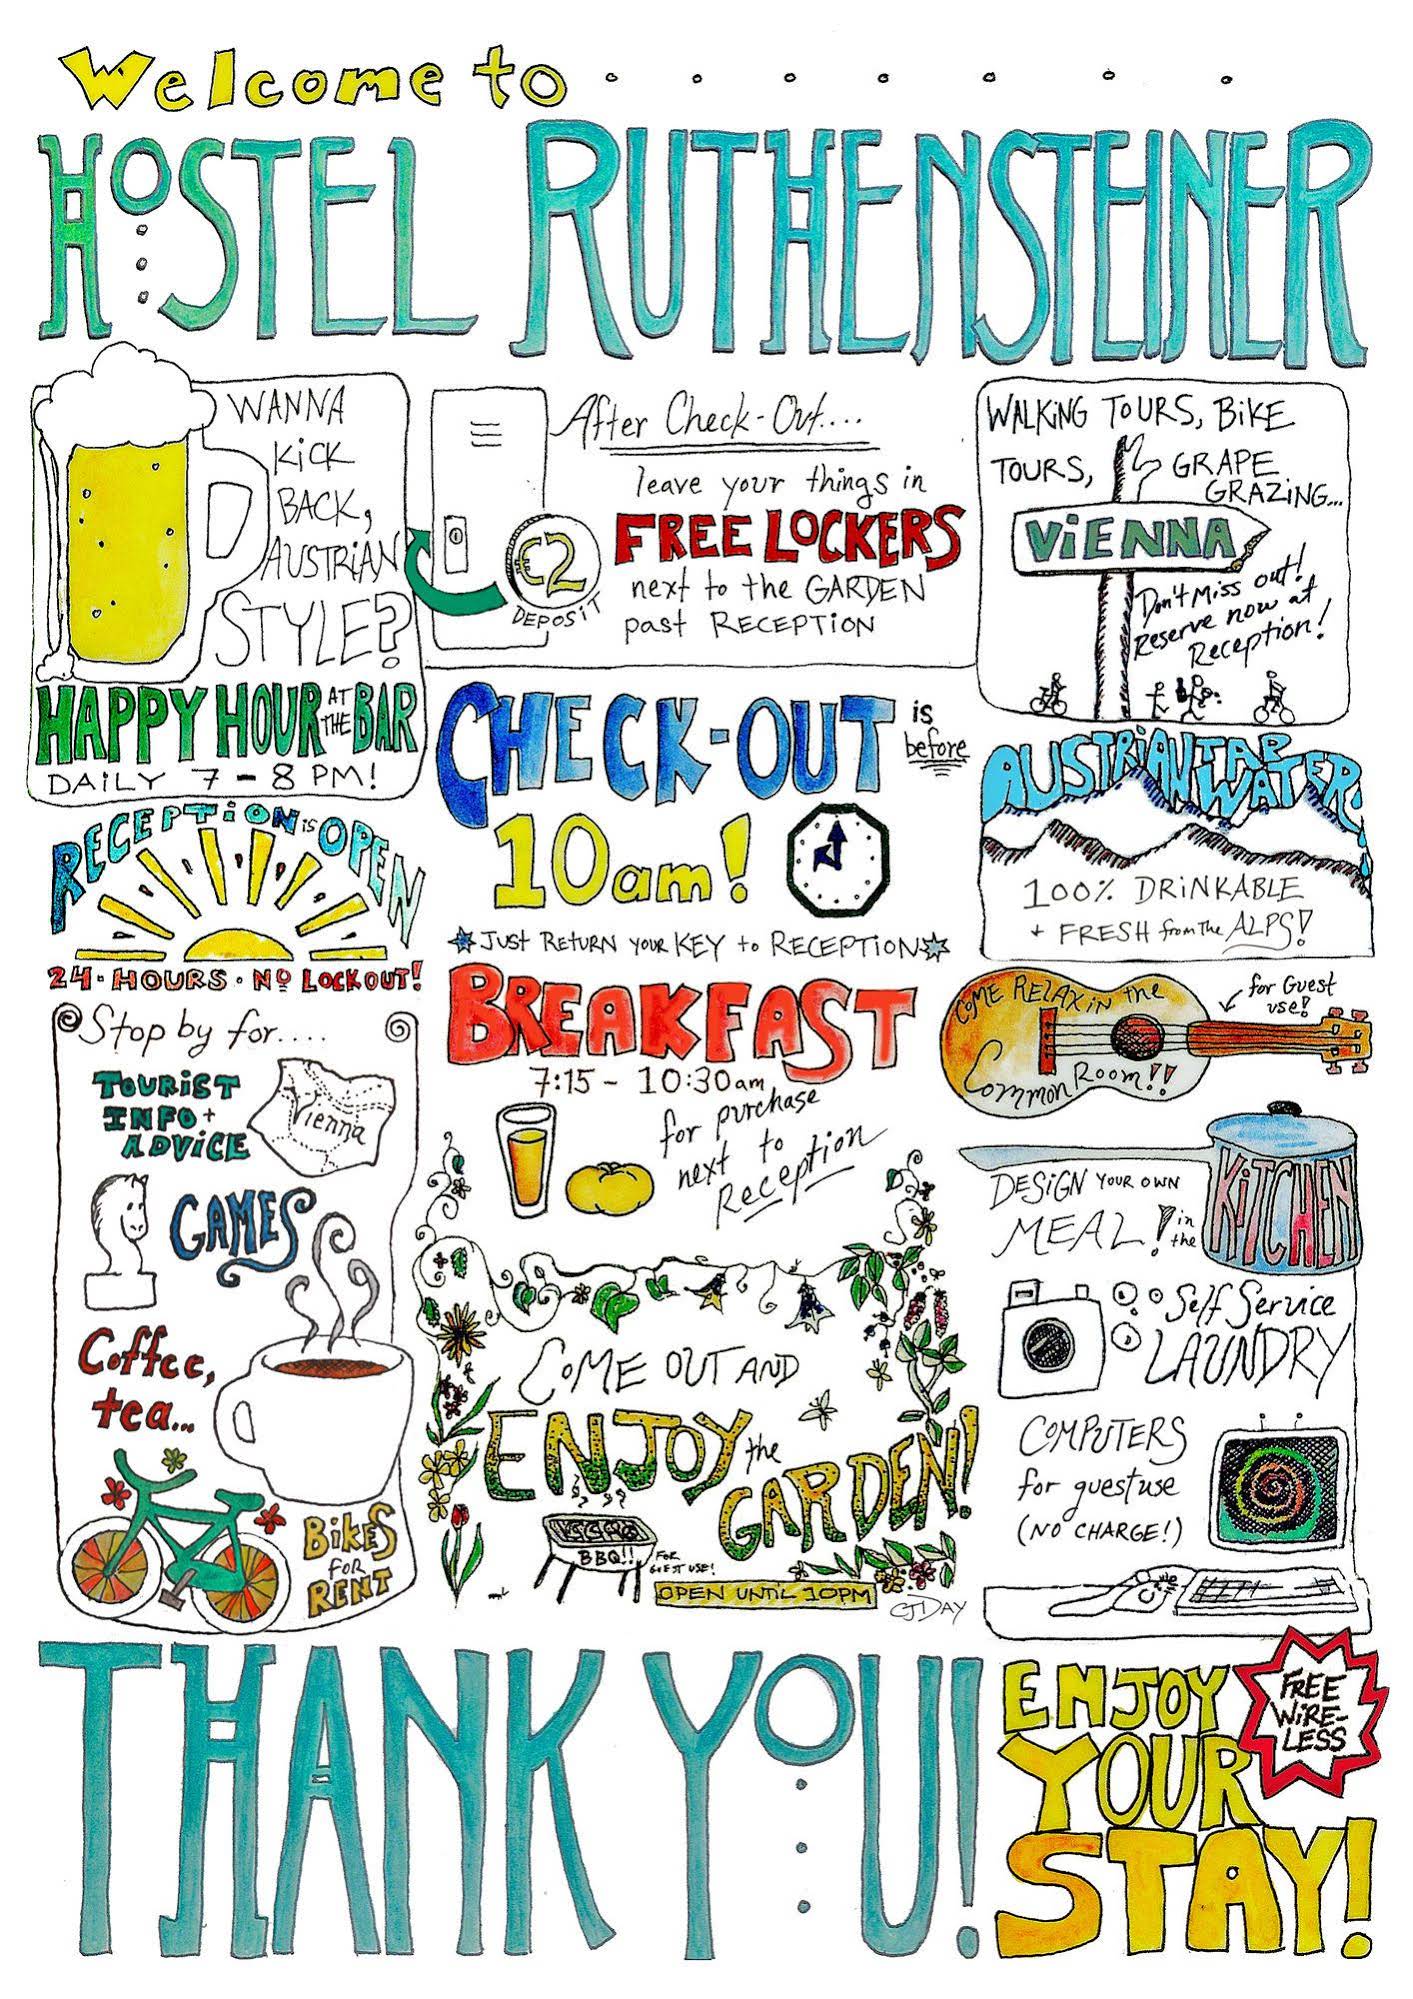 Welcome to
HOSTEL RUTHENSTEINER
WANNA
KICK
BACK,
AUSTRIAN
STYLE?
HAPPY HOUR AT THE BAR
DAILY 7 - 8 PM!
After Check-Out....
leave your things in
FREE LOCKERS
next to the GARDEN
past RECEPTION
€2
DEPOSIT
WALKING TOURS, BIKE
TOURS, GRAPE
GRAZING...
VIENNA
Don't Miss out!
Reserve now at
Reception!
CHECK-OUT is
before
10am!
*JUST RETURN YOUR KEY to RECEPTION*
RECEPTION IS OPEN
24·HOURS·NO LOCKOUT!
AUSTRIAN TAP
WATER
100% DRINKABLE
+ FRESH from The ALPS!
BREAKFAST
7:15 - 10:30am
for purchase
next to
Reception
COME RELAX in the
Common Room!!
for Guest
use!
Stop by for....
TOURIST
INFO +
ADVICE
Vienna
GAMES
Coffee,
tea...
BIKES
FOR
RENT
DESIGN YOUR OWN
MEAL! in
the
KITCHEN
Self Service
LAUNDRY
COMPUTERS
for guest use
(NO CHARGE!)
COME OUT AND
ENJOY the
GARDEN!
BBQ!!
FOR
GUEST USE!
OPEN UNTIL 10PM
CJDAY
THANK YOU!
ENJOY
YOUR
STAY!
FREE
WIRE-
LESS